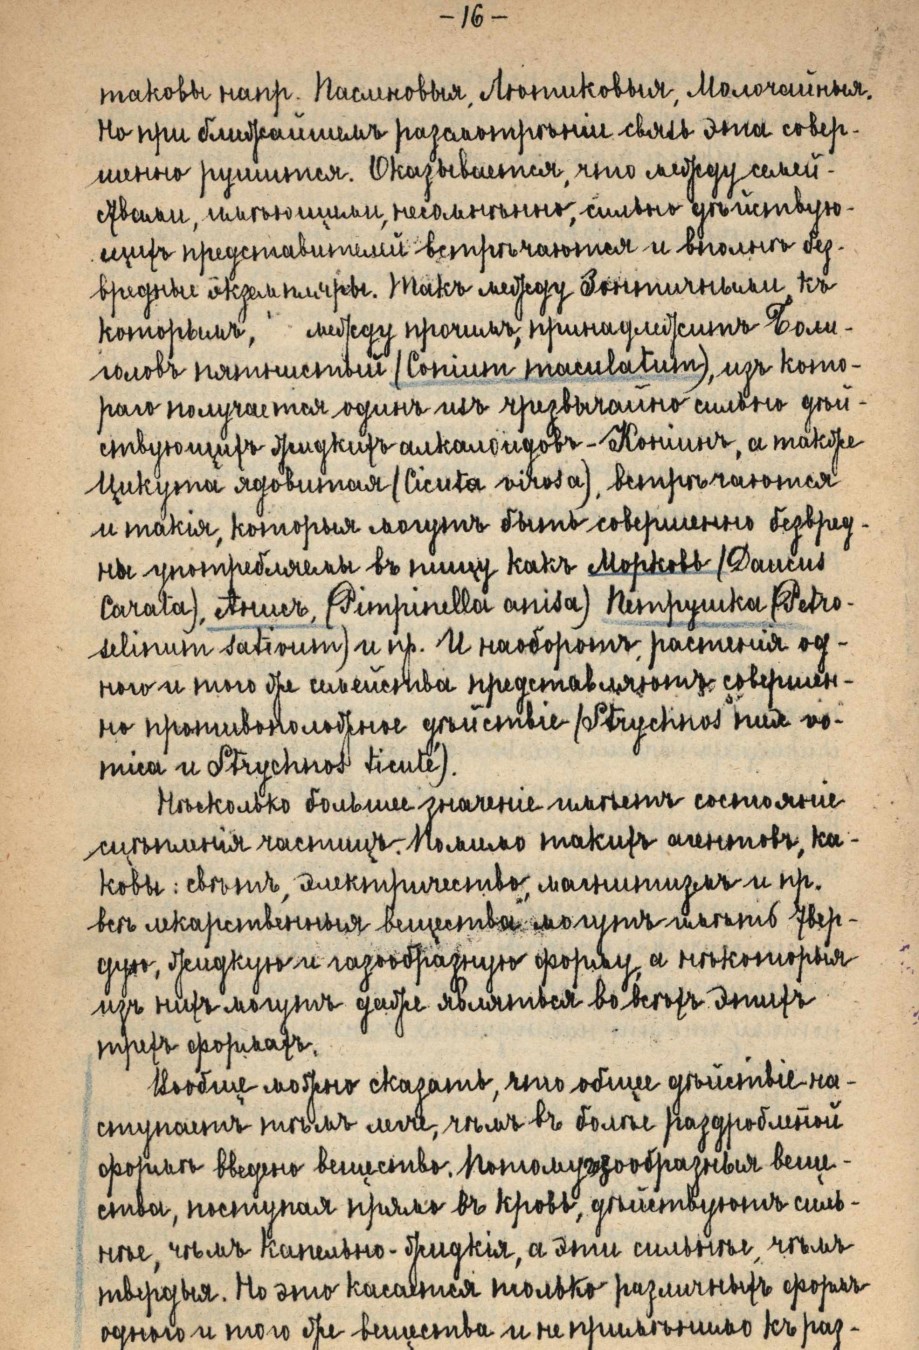 -16-
таковы напр. Пасленовыя, Лютиковыя, Молочайныя.
Но при ближайшемъ разсмотрѣніи связь эта совер-
шенно рушится. Оказывается, что между семей-
ствами, имѣющими, несомнѣнно, сильно дѣйствую-
щихъ представителей встрѣчаются и вполнѣ без-
вредные экземпляры. Такъ между Зонтичными, къ
которымъ, между прочимъ, принадлежитъ Боли-
головъ пятнистый (Conium maculatum), изъ кото-
раго получается одинъ изъ чрезвычайно сильно дѣй-
ствующихъ жидкихъ алкалоидовъ - Коніинъ, а также
Цикута ядовитая (Cicuta virosa), встрѣчаются
и такія, которыя могутъ быть совершенно безвред-
ны употребляемы въ пищу какъ Морковь (Daucus
Carata), Анисъ, (Pimpinella anisa) Петрушка (Petro-
selinum sativum) и пр. И наоборотъ, растенія од-
ного и того же семейства представляютъ совершен-
но противоположное дѣйствіе (Strychnos nux vo-
mica и Strychnos ticuté).
Нѣсколько большее значеніе имѣетъ состояніе
сцѣпленія частицъ. Помимо такихъ агентовъ, ка-
ковы: свѣтъ, электричество, магнитизмъ и пр.
всѣ лекарственныя вещества могутъ имѣть твер-
дую, жидкую и газообразную форму, а нѣкоторыя
изъ нихъ могутъ даже являться во всѣхъ этихъ
трехъ формахъ.
Вообще можно сказать, что общее дѣйствіе на-
ступаетъ тѣмъ легче, чѣмъ въ болѣе раздробленой
формѣ введено вещество. Потому газообразныя веще-
ства, поступая прямо въ кровь, дѣйствуютъ силь-
нѣе, чѣмъ капельно-жидкія, а эти сильнѣе, чѣмъ
твердыя. Но это касается только различныхъ формъ
одного и того же вещества и не примѣнимо къ раз-